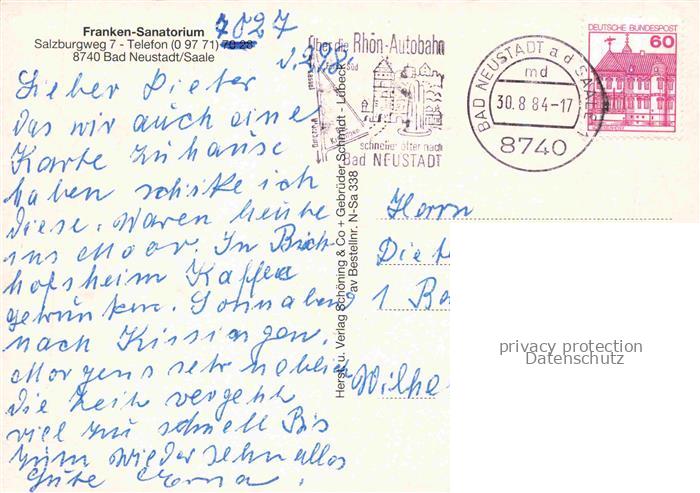 Franken-Sanatorium
Salzburgweg 7 - Telefon (0 97 71) 70 28
7027
8740 Bad Neustadt/Saale
Lieber Dieter
das wir auch eine
Karte zuhause
haben schike ich
diese. Waren heute
ins Moor. In Bisch-
hofsheim Kaffee
getrunken. Sonnabend
nach Kissingen.
Morgens sehr neblich
die Zeit vergeht
viel zu schnell Bis
zum wiedersehn alles
Gute Erna.
Über die Rhön-Autobahn
schneller öfter nach
Bad NEUSTADT
BAD NEUSTADT a d SAALE 1
md
30.8.84-17
8740
DEUTSCHE BUNDESPOST
60
Herst. u. Verlag Schöning & Co + Gebrüder Schmidt - Lübeck
av Bestellnr. N-Sa 338
Herrn
Diet
1 Be
Wilhe
privacy protection
Datenschutz